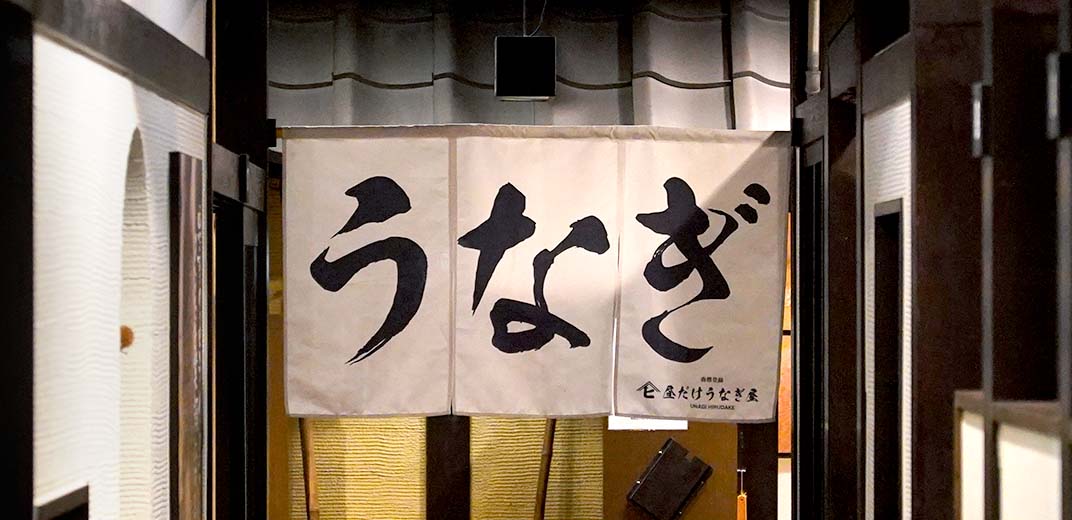 うなぎ
商標登録
ヒ 昼だけうなぎ屋
UNAGI HIRUDAKE